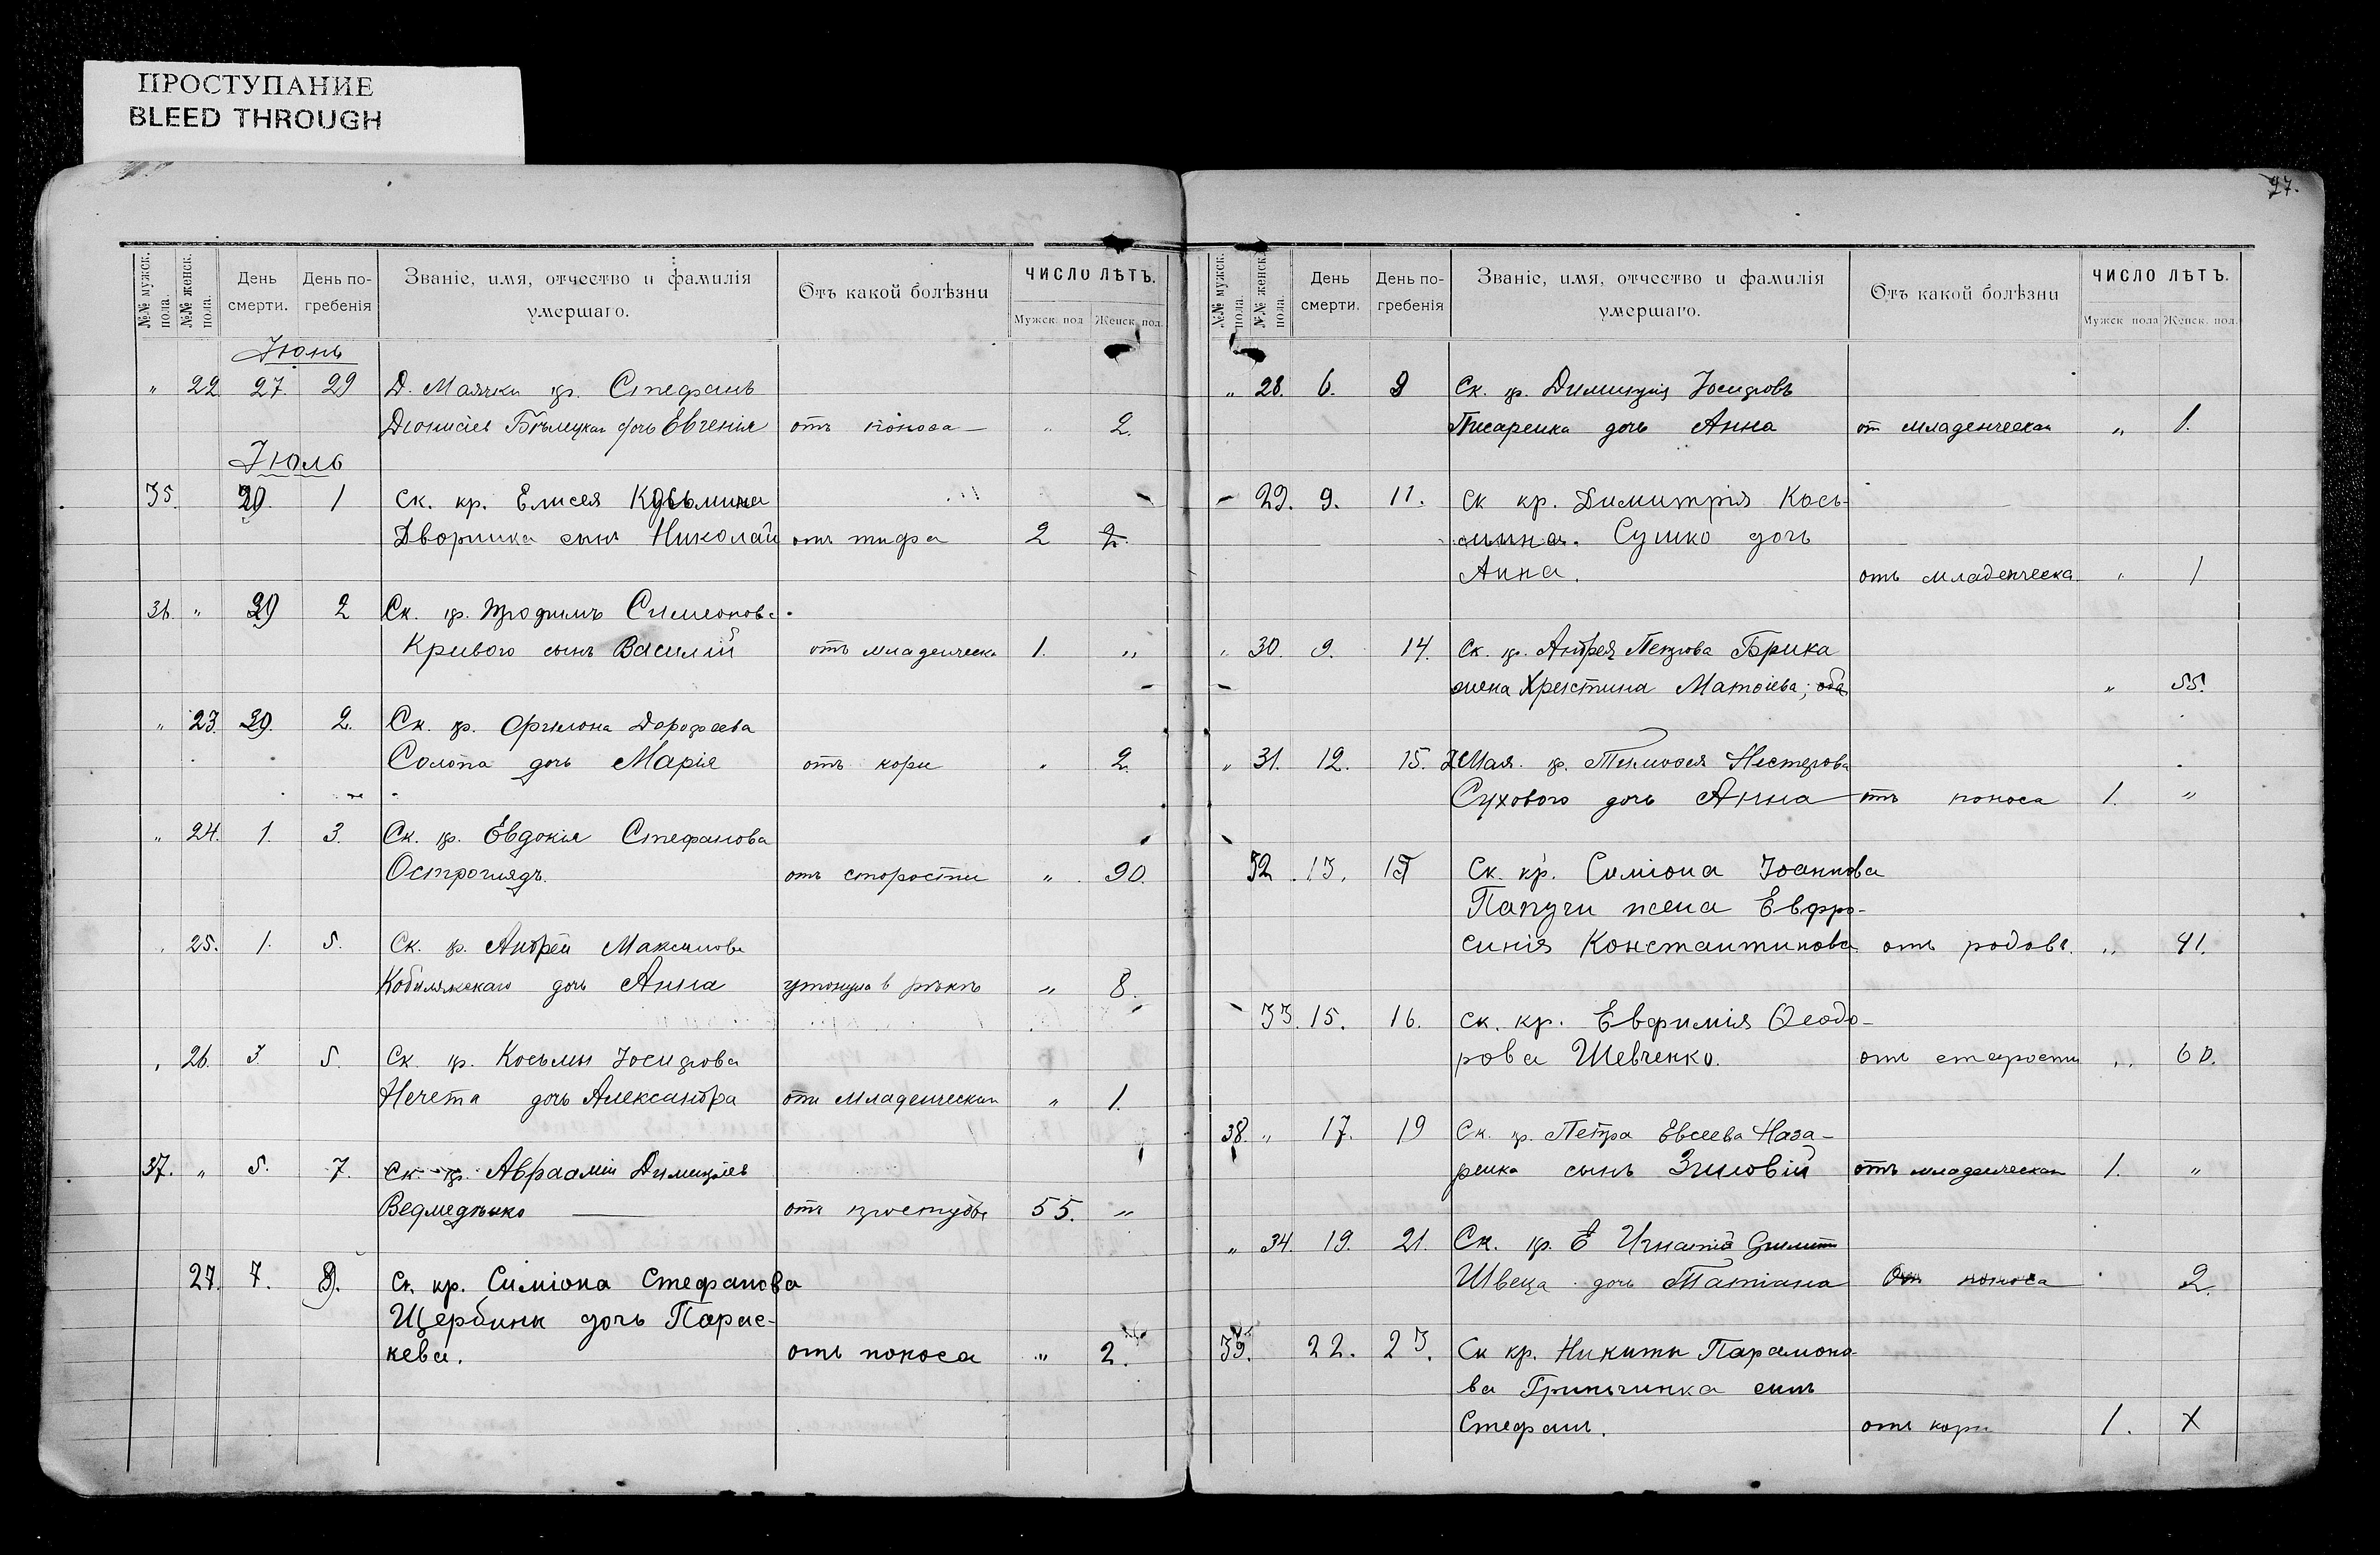 ПРОСТУПАНИЕ
BLEED THROUGH
№№ мужск. пола.
№№ женск. пола.
День смерти.
День по-гребенія
Званіе, имя, отчество и фамилія умершаго.
Отъ какой болѣзни
ЧИСЛО ЛѢТЪ.
Мужск. пол Женск. пол.
Іюнь
" 22. 27. 29 Д. Маячки кр. Стефанъ
Діонисіев дочь Евгенія отъ поноса — " 2.
Іюль
35. 1 Ск. кр. Елисея Козьмина
Дворника сынъ Николай отъ тифа 2 2.
36. " 2 Ск. кр. Трофимъ Симеонова
Кривого сынъ Василій отъ младенческ 1. "
" 23. 30. 2. Ск. кр. Филона Дорофеева
Солопа дочь Марія отъ кори " 2.
" 24. 1. 3. Ск. кр. Евдокія Стефанова
Остроглядъ. отъ старости " 90.
" 25. 1. 5. Ск. кр. Андрей Максимова
Кобиляжскаго дочь Анна утонула в рѣкѣ " 8.
" 26. 3. 5. Ск. кр. Косьмы Іосифова
Нечета дочь Александра отъ младенческая " 1.
37. " 5. 7. Ск. кр. Авраамій Димитріев
Ведмеденко — отъ простуды 55. "
27. 7. 9. Ск. кр. Симіона Стефанова
Щербини дочь Парас-
кева. отъ поноса " 2.
27.
№№ мужск. пола.
№№ женск. пола.
День смерти.
День по-гребенія
Званіе, имя, отчество и фамилія умершаго.
Отъ какой болѣзни
ЧИСЛО ЛѢТЪ.
Мужск пола Женск. пол.
" 28. 6. 8 Ск. кр. Димитрія Іосифовъ
Писаренка дочь Анна от младенческая " 1.
29. 9. 11. Ск кр. Димитрія Кось-
мина. Сушко дочь
Анна. отъ младенческа " 1
" 30. 9. 14. Ск. кр. Андрея Петрова Брика
жена Христина Матѳіева; " 55.
" 31. 12. 15. Д Мая. кр. Тимоѳея Нестерова
Сухового дочь Анна отъ поноса 1. "
32. 13. 15 Ск. кр. Симіона Іоаннова
Папучи жена Евфро-
синія Константинова отъ родовъ. " 41.
33. 15. 16. Ск. кр. Евфимія Ѳеодо-
рова Шевченко. отъ старости " 60.
38. " 17. 19 Ск. кр. Петра Евсеева Наза-
ренка сынъ Зиновій отъ младенческая 1. "
" 34. 19. 21. Ск. кр. Е Игнатій
Швеца дочь Татіана От поноса 2.
39. 22. 23. Ск кр. Никиты Парамоно-
ва Гринчинка сынъ
Стефанъ. отъ кори 1. X